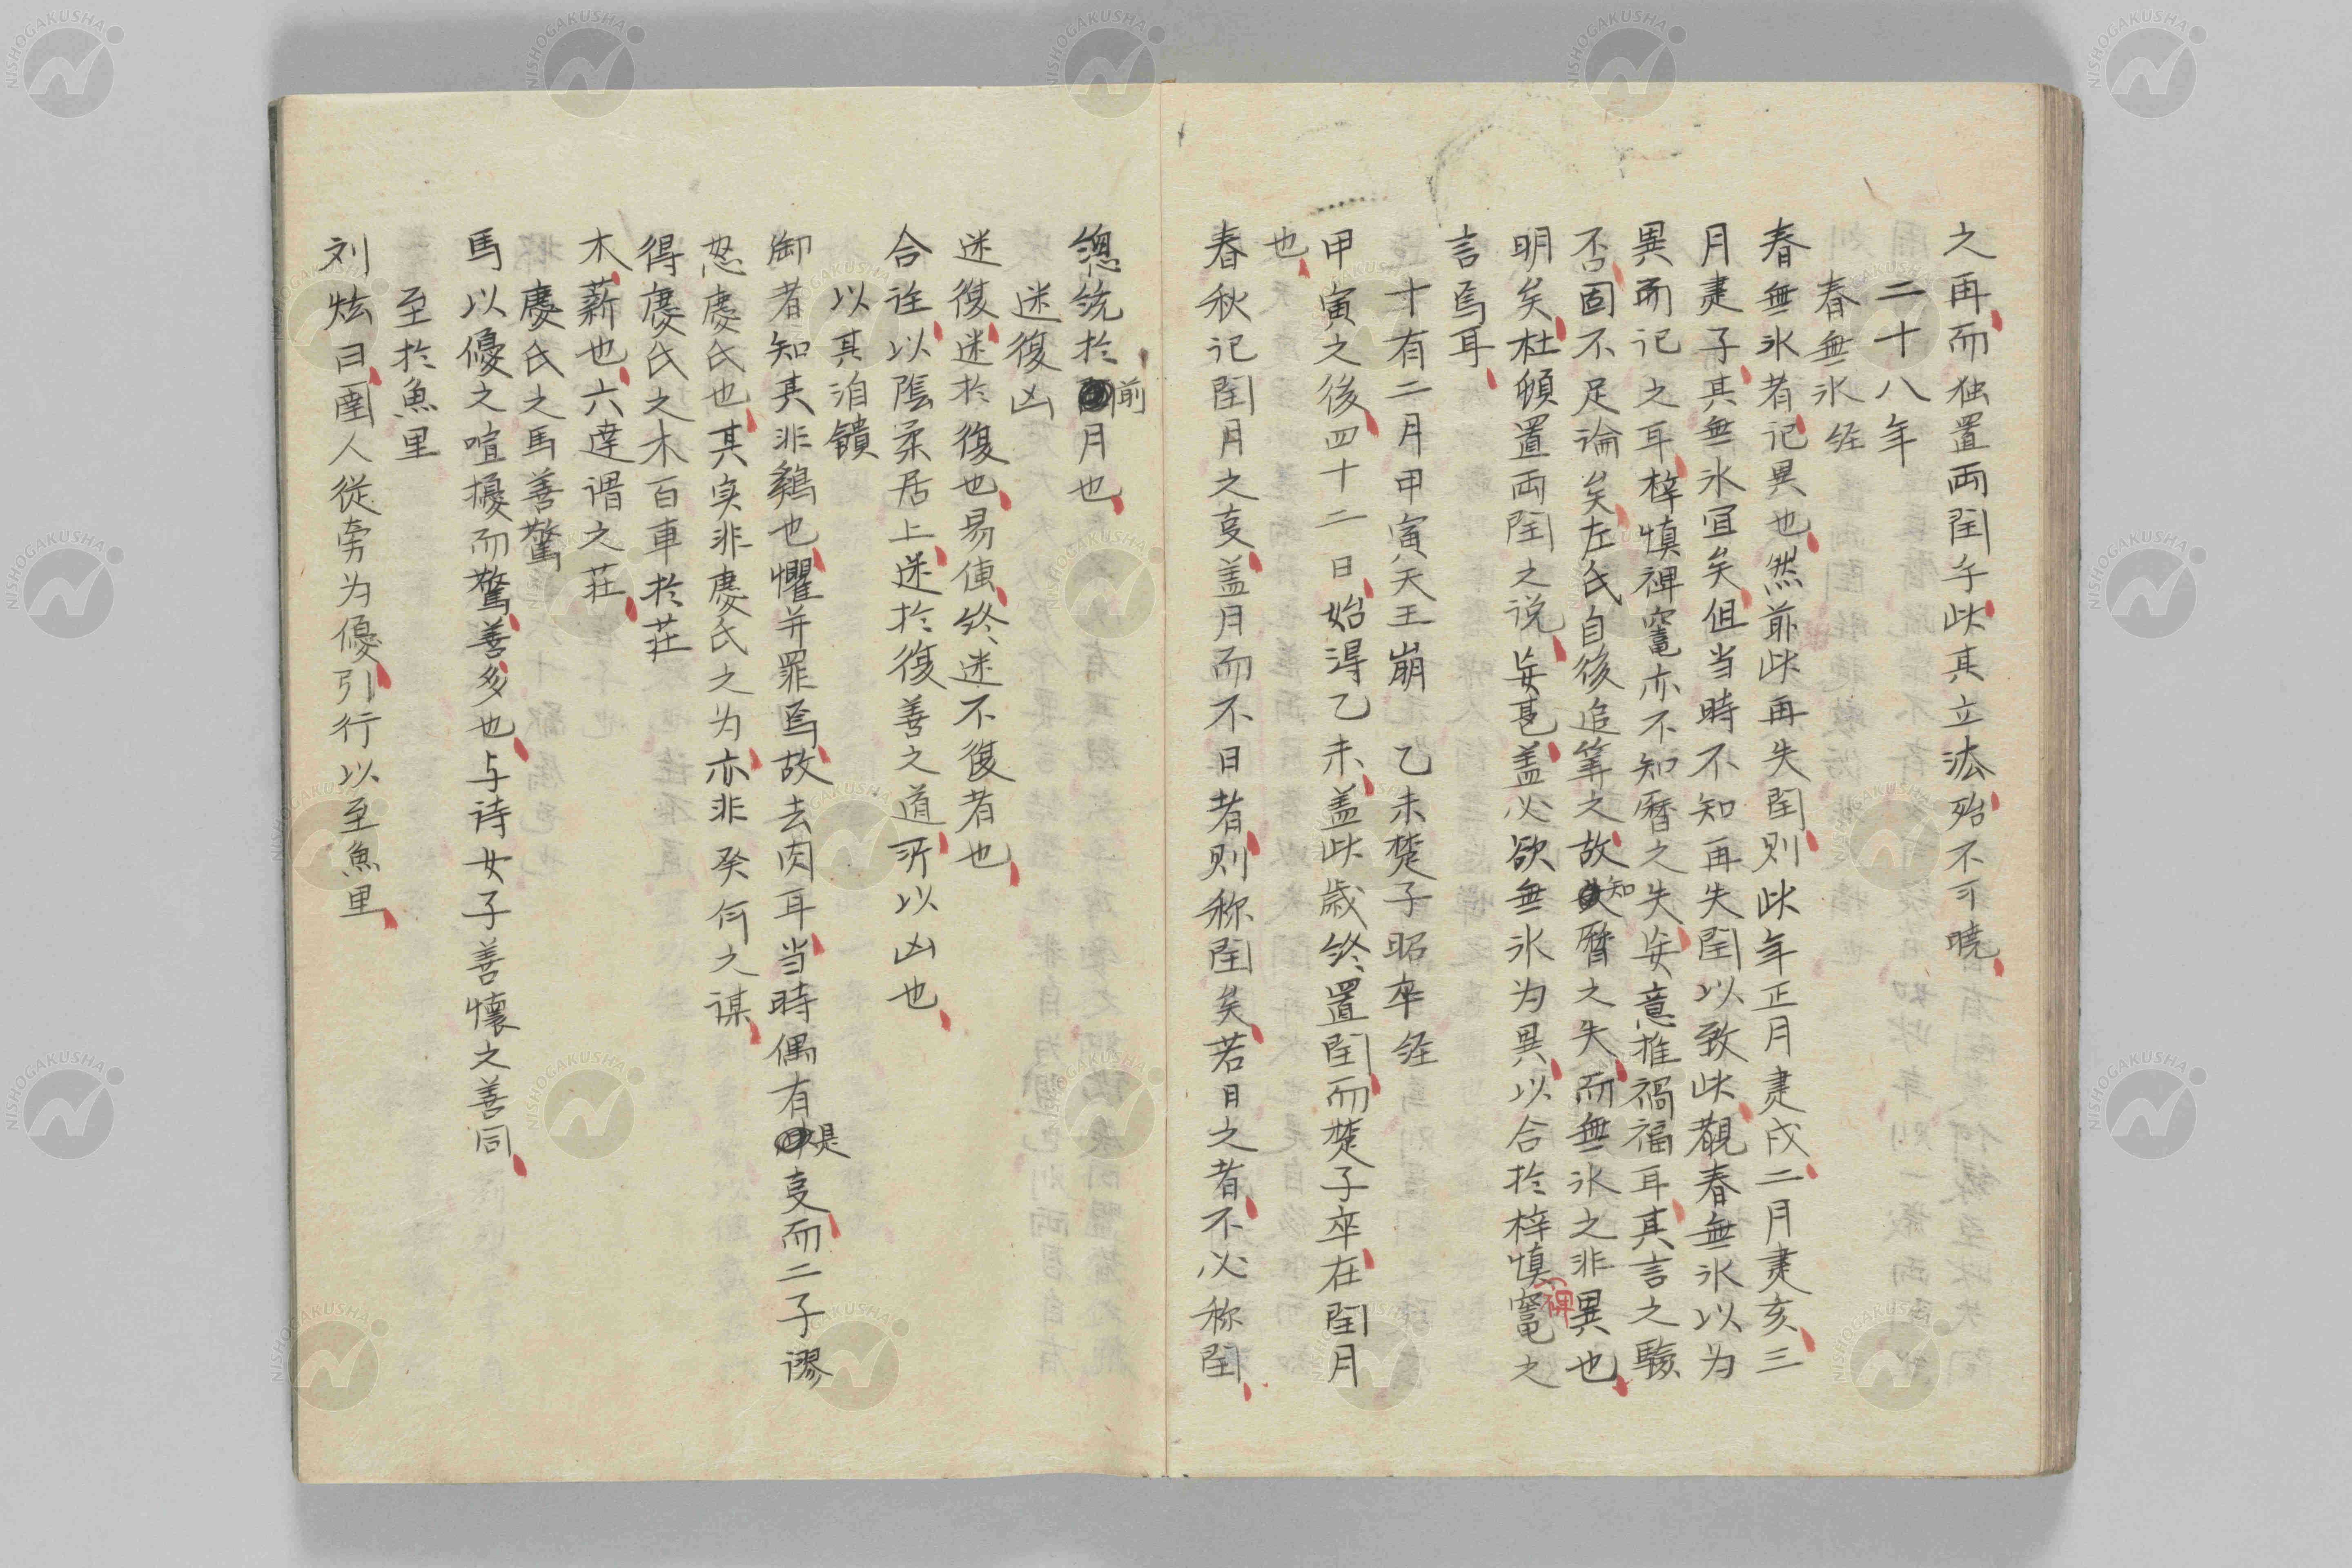 之再而独置両閏乎此其立法殆不可暁
二十八年
春無氷 経
春無氷者記異也然前此再失閏則此年正月建戌二月建亥三
月建子其無氷宜矣但当時不知再失閏以致此観春無氷以为
異而記之耳梓慎裨竈亦不知暦之失妄意推禍福耳其言之験
否固不足論矣左氏自後追筭之故知暦之失而無氷之非異也
明矣杜傾置両閏之説妄甚盖必欲無氷为異以合於梓慎裨竈之
言焉耳
十有二月甲寅天王崩 乙未楚子昭卒 経
甲寅之後四十二日始得乙未盖此歳終置閏而楚子卒在閏月
也
春秋記閏月之变盖月而不日者則称閏矣若日之者不必称閏
總統於前月也
迷復凶
迷復迷於復也易伝終迷不復者也
合注以陰柔居上迷於復善之道所以凶也
以其洎饋
御者知其非鷄也懼并罪焉故去肉耳当時偶有是变而二子謬
怒慶氏也其実非慶氏之为亦非癸何之謀
得慶氏之木百車於荘
木薪也六達謂之荘
慶氏之馬善驚
馬以優之喧擾而驚善多也与詩女子善懐之善同
至於魚里
刘炫曰圉人従旁为優引行以至魚里